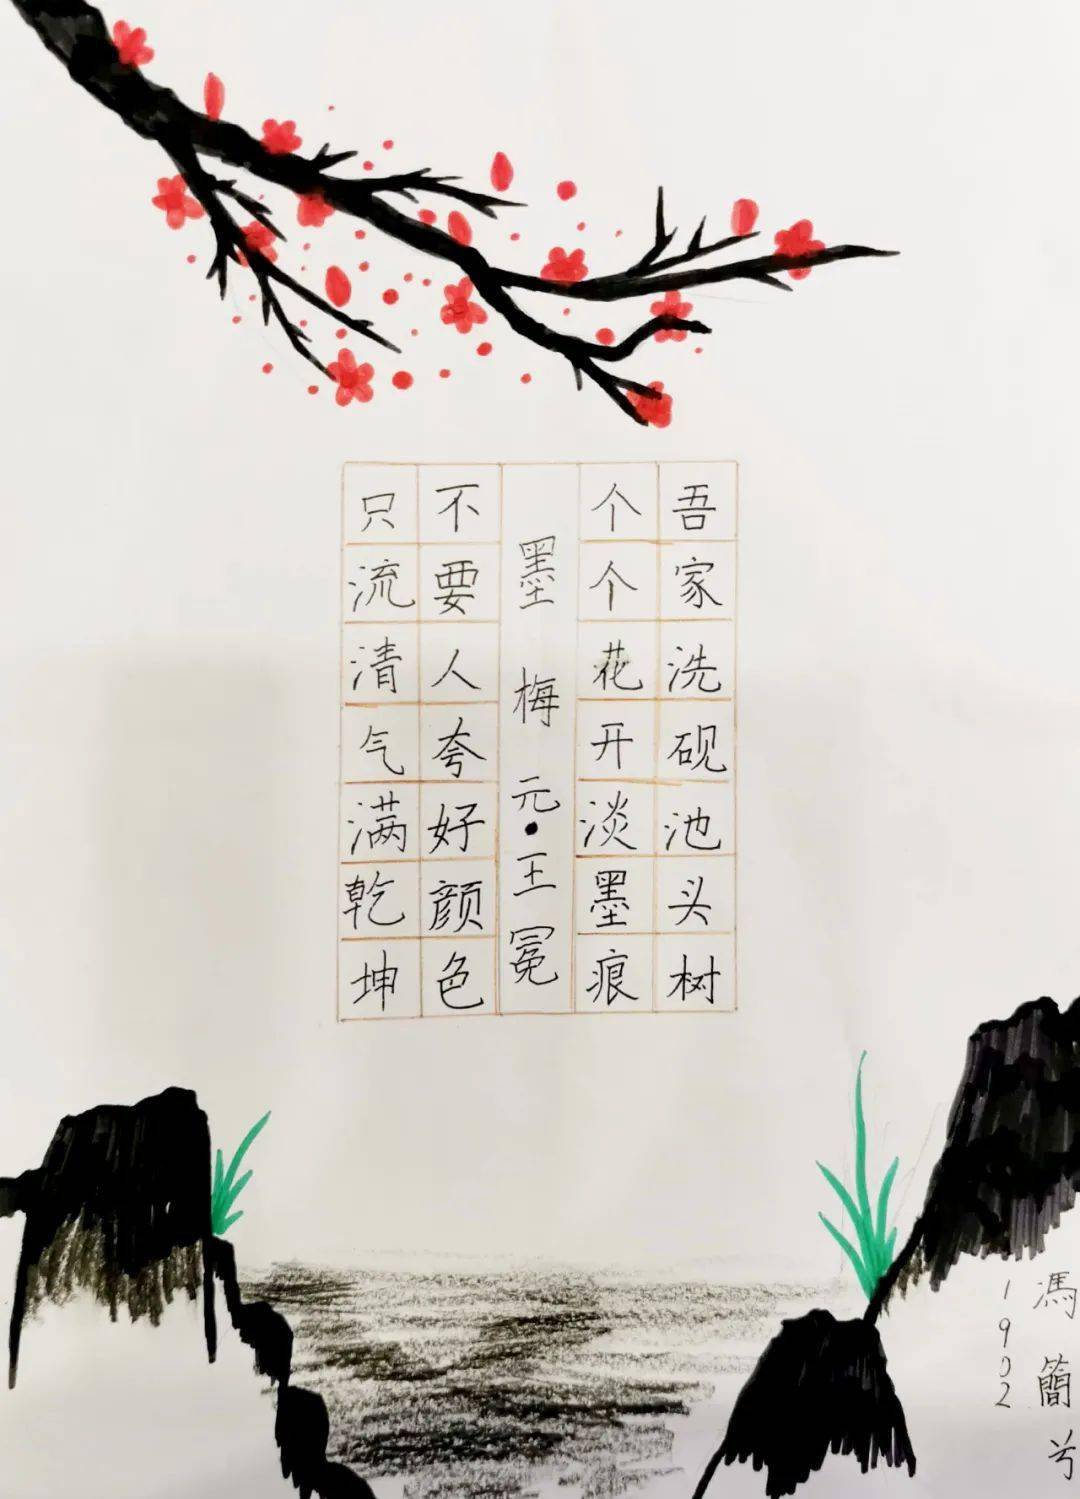 吾家洗砚池头树
个个花开淡墨痕
墨梅 元·王冕
不要人夸好颜色
只流清气满乾坤
馮簡兮
1902